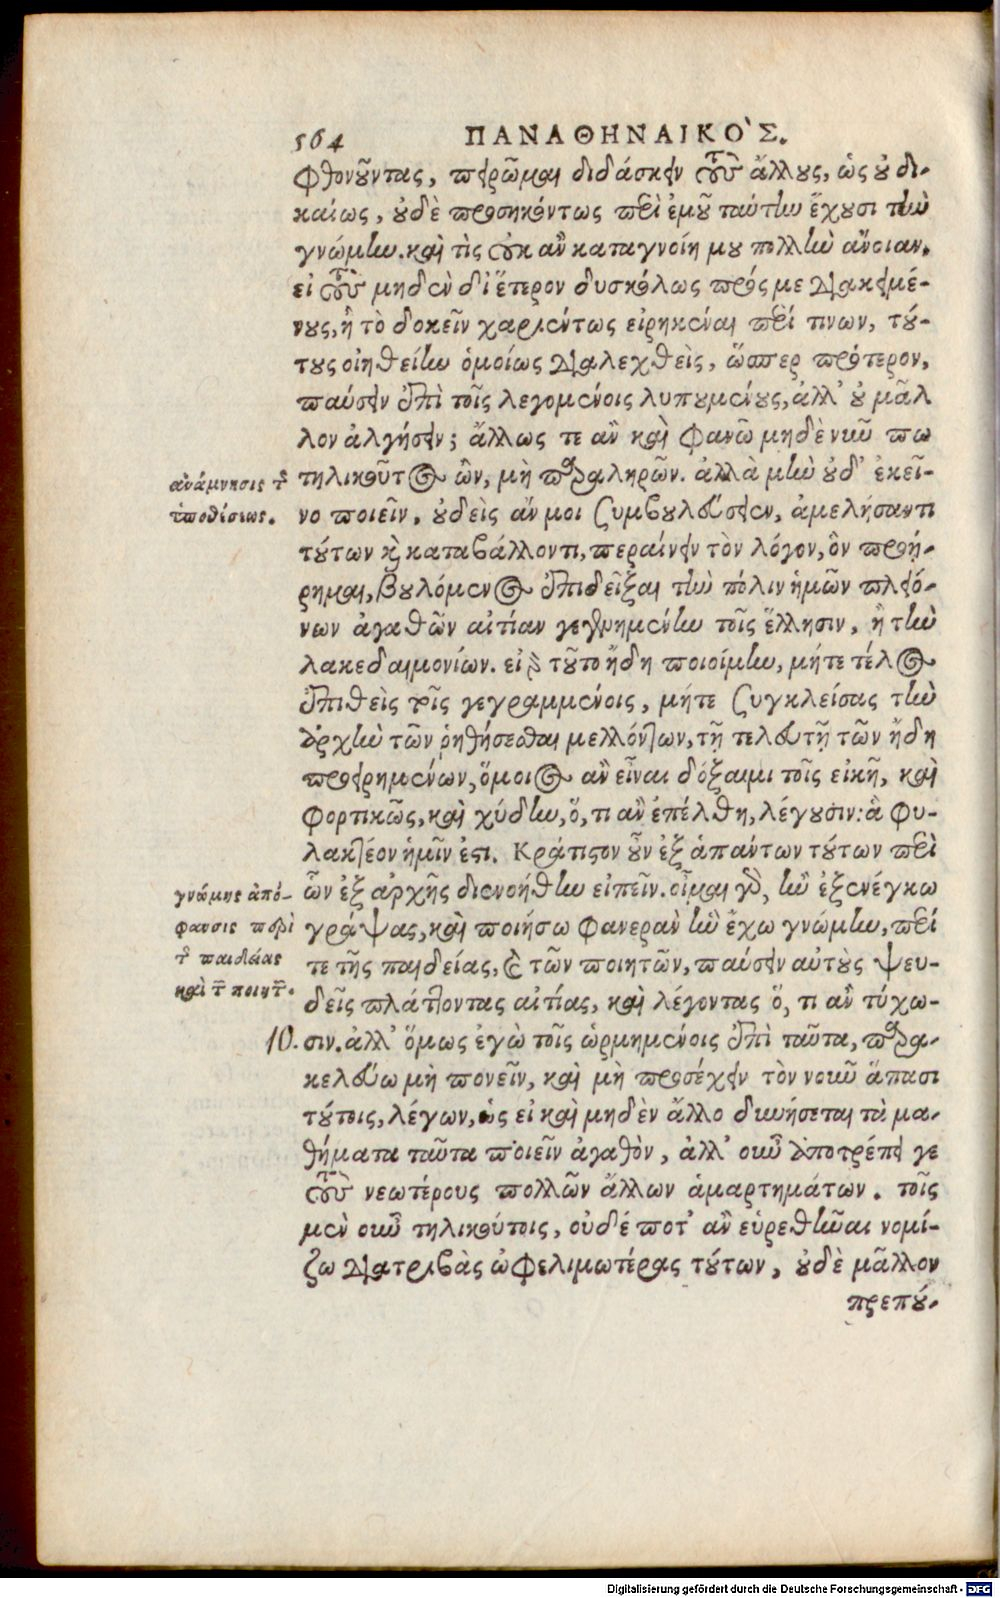 564 ΠΑΝΑΘΗΝΑΙΚΟ`Σ.
φθονοῦντας, πειρῶμαι διδάσκειν τοὺς ἄλλους, ὡς οὐ δι-
καίως, οὐδὲ προσηκόντως περὶ ἐμοῦ ταύτην ἔχουσι τὴν
γνώμην. καὶ τὶς οὐκ ἂν καταγνοίη μου πολλὴν ἄνοιαν,
εἰ τοὺς μηδὲν δι' ἕτερον δυσκόλως πρός με διακειμέ-
νους, ἢ τὸ δοκεῖν χαριέντως εἰρηκέναι περί τινων, τού-
τους οἰηθείην ὁμοίως διαλεχθεὶς, ὥσπερ πρότερον,
παύσειν ἐπὶ τοῖς λεγομένοις λυπουμένους, ἀλλ' οὐ μᾶλ
λον ἀλγήσειν; ἄλλως τε ἂν καὶ φανῶ μηδὲ νῦν πω
ἀνάμνησις τῆς τηλικοῦτος ὢν, μὴ παραληρῶν. ἀλλὰ μὴν οὐδ' ἐκεῖ-
ὑποθέσεως. νο ποιεῖν, οὐδεὶς ἄν μοι συμβουλεύσειεν, ἀμελήσαντι
τούτων καὶ καταβάλλοντι, περαίνειν τὸν λόγον, ὃν προῄ-
ρημαι, βουλόμενος ἐπιδεῖξαι τὴν πόλιν ἡμῶν πλειό-
νων ἀγαθῶν αἰτίαν γεγενημένην τοῖς ἕλλησιν, ἢ τὴν
λακεδαιμονίων. εἰ γὰρ τοῦτο ἤδη ποιοίμην, μήτε τέλος
ἐπιθεὶς τοῖς γεγραμμένοις, μήτε συγκλείσας τὴν
ἀρχὴν τῶν ῥηθήσεσθαι μελλόντων, τῇ τελευτῇ τῶν ἤδη
προειρημένων, ὅμοιος ἂν εἶναι δόξαιμι τοῖς εἰκῆ, καὶ
φορτικῶς, καὶ χύδην, ὅ, τι ἂν ἐπέλθη, λέγουσιν: ἃ φυ-
λακτέον ἡμῖν ἐστι. Κράτιστον οὖν ἐξ ἁπάντων τούτων περὶ
γνώμης ἀπό- ὧν ἐξ ἀρχῆς διενοήθην εἰπεῖν. οἶμαι γὰρ, ἣν ἐξενέγκω
φανσις περὶ γράψας, καὶ ποιήσω φανερὰν ἣν ἔχω γνώμην, περί
τῆς παιδείας τε τῆς παιδείας, καὶ τῶν ποιητῶν, παύσειν αὐτοὺς ψευ-
καὶ τῶν ποιητῶν. δεῖς πλάττοντας αἰτίας, καὶ λέγοντας ὅ, τι ἂν τύχω-
10. σιν. ἀλλ' ὅμως ἐγὼ τοῖς ὡρμημένοις ἐπὶ ταῦτα, παρα-
κελεύω μὴ πονεῖν, καὶ μὴ προσέχειν τὸν νοῦν ἅπασι
τούτοις, λέγων, ὡς εἰ καὶ μηδὲν ἄλλο δυνήσεται τὰ μα-
θήματα ταῦτα ποιεῖν ἀγαθὸν, ἀλλ' οὖν ἀποτρέπει γε
τοὺς νεωτέρους πολλῶν ἄλλων ἁμαρτημάτων. τοῖς
μὲν οὖν τηλικούτοις, οὐδέ ποτ' ἂν εὑρεθῆναι νομί-
ζω διατριβὰς ὠφελιμωτέρας τούτων, οὐδὲ μᾶλλον
πρεπού-
Digitalisierung gefördert durch die Deutsche Forschungsgemeinschaft - DFG